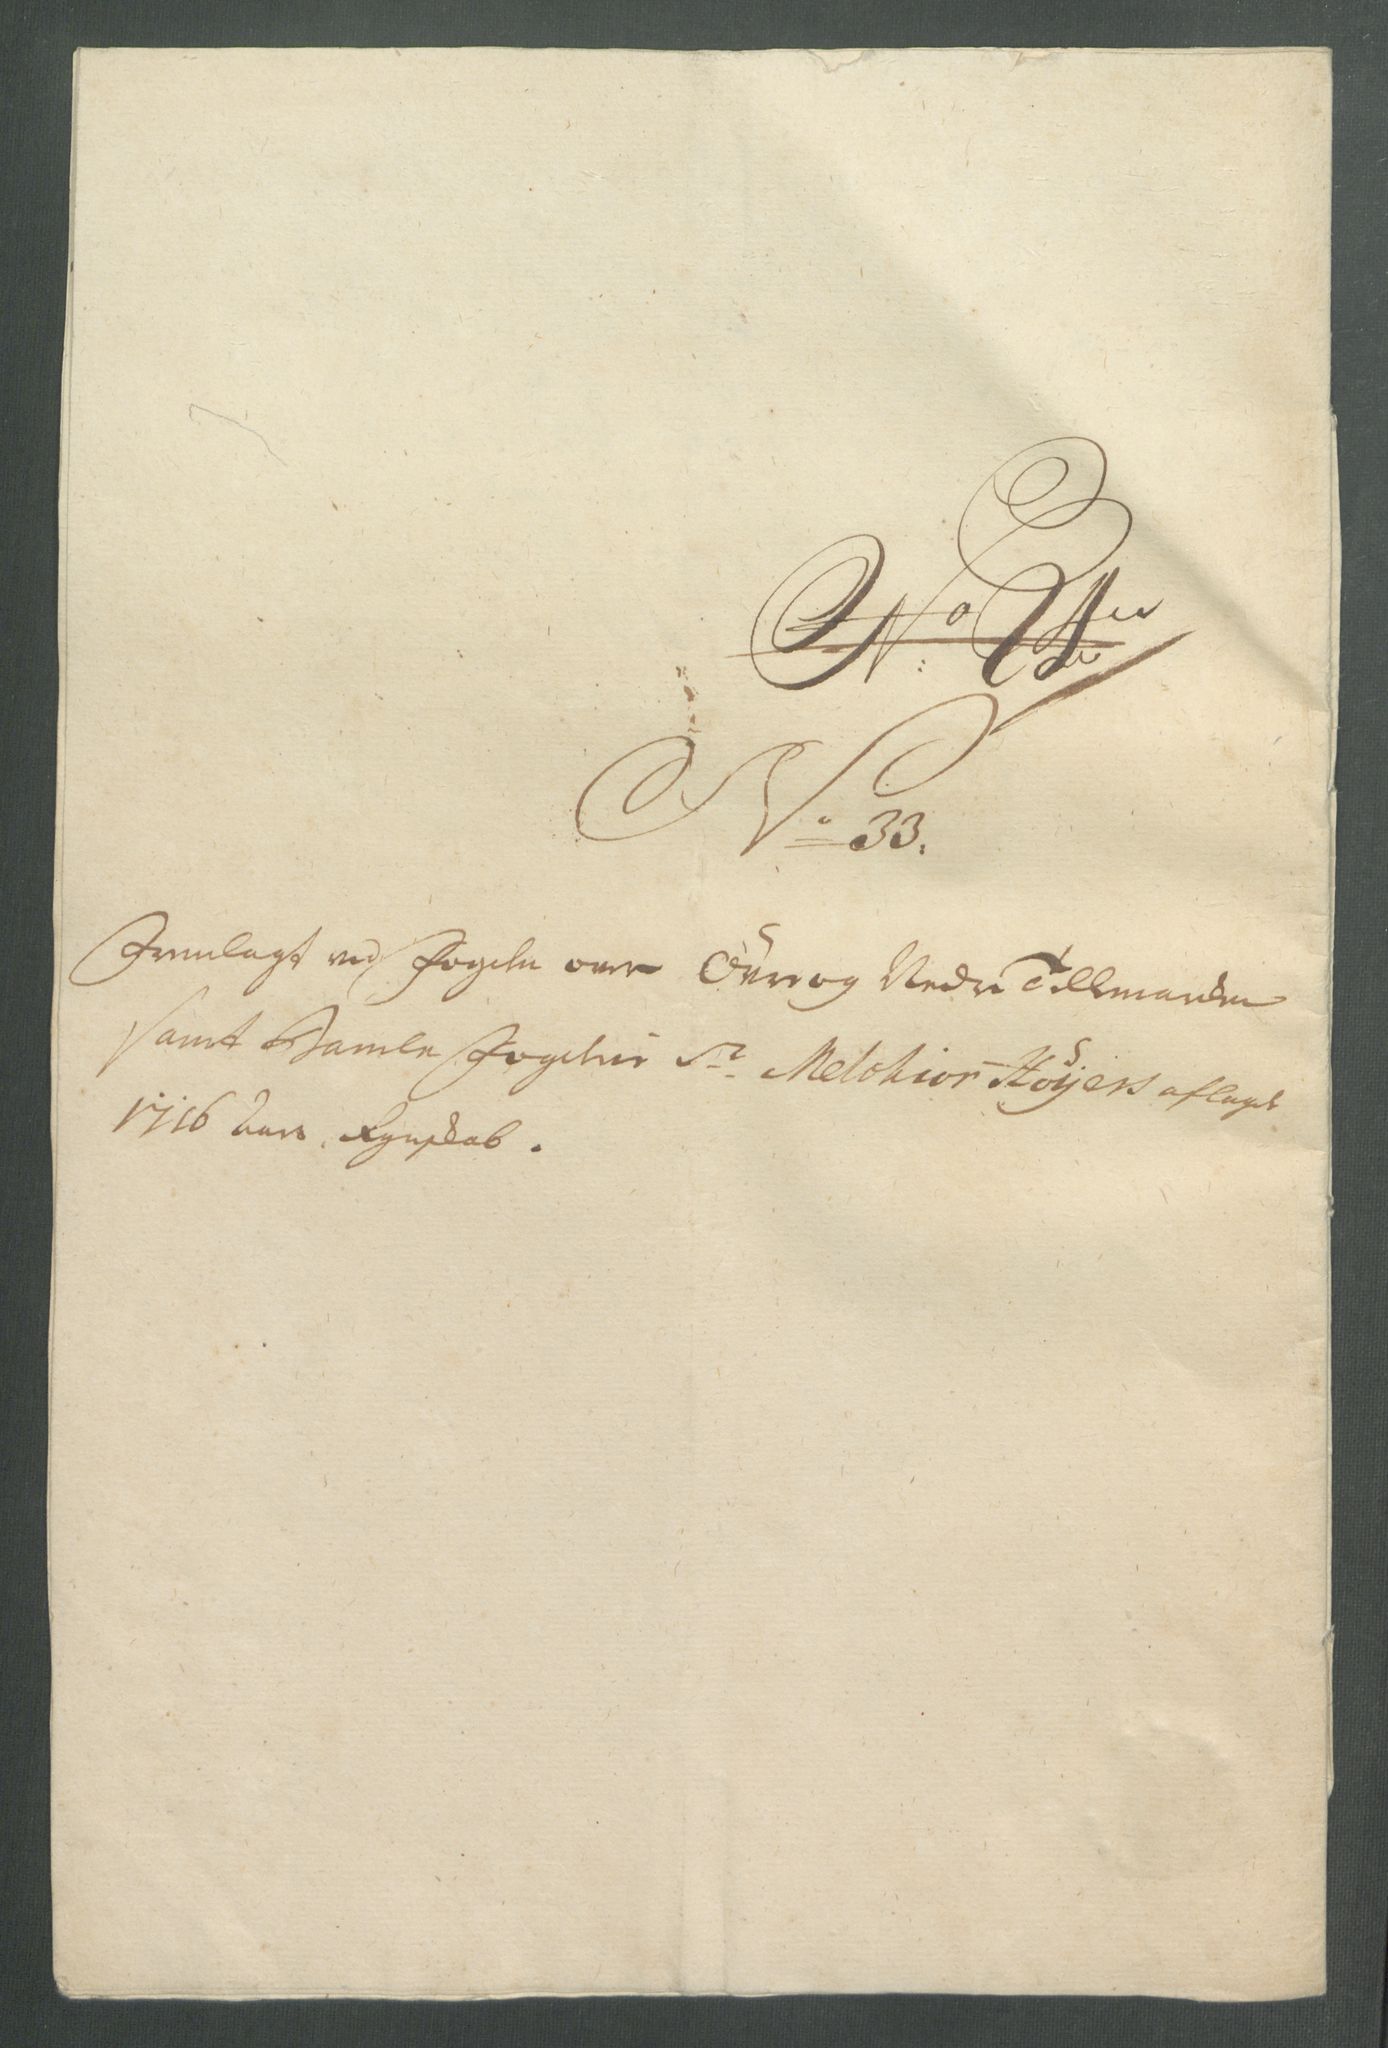 No
No 33.
Fremlagt ved Fogeden over Öure og Nedre Tellemarken
samt Bamle Fogderie Sr. Melchior Höÿers aflagde
1716 Aars Regnskab.